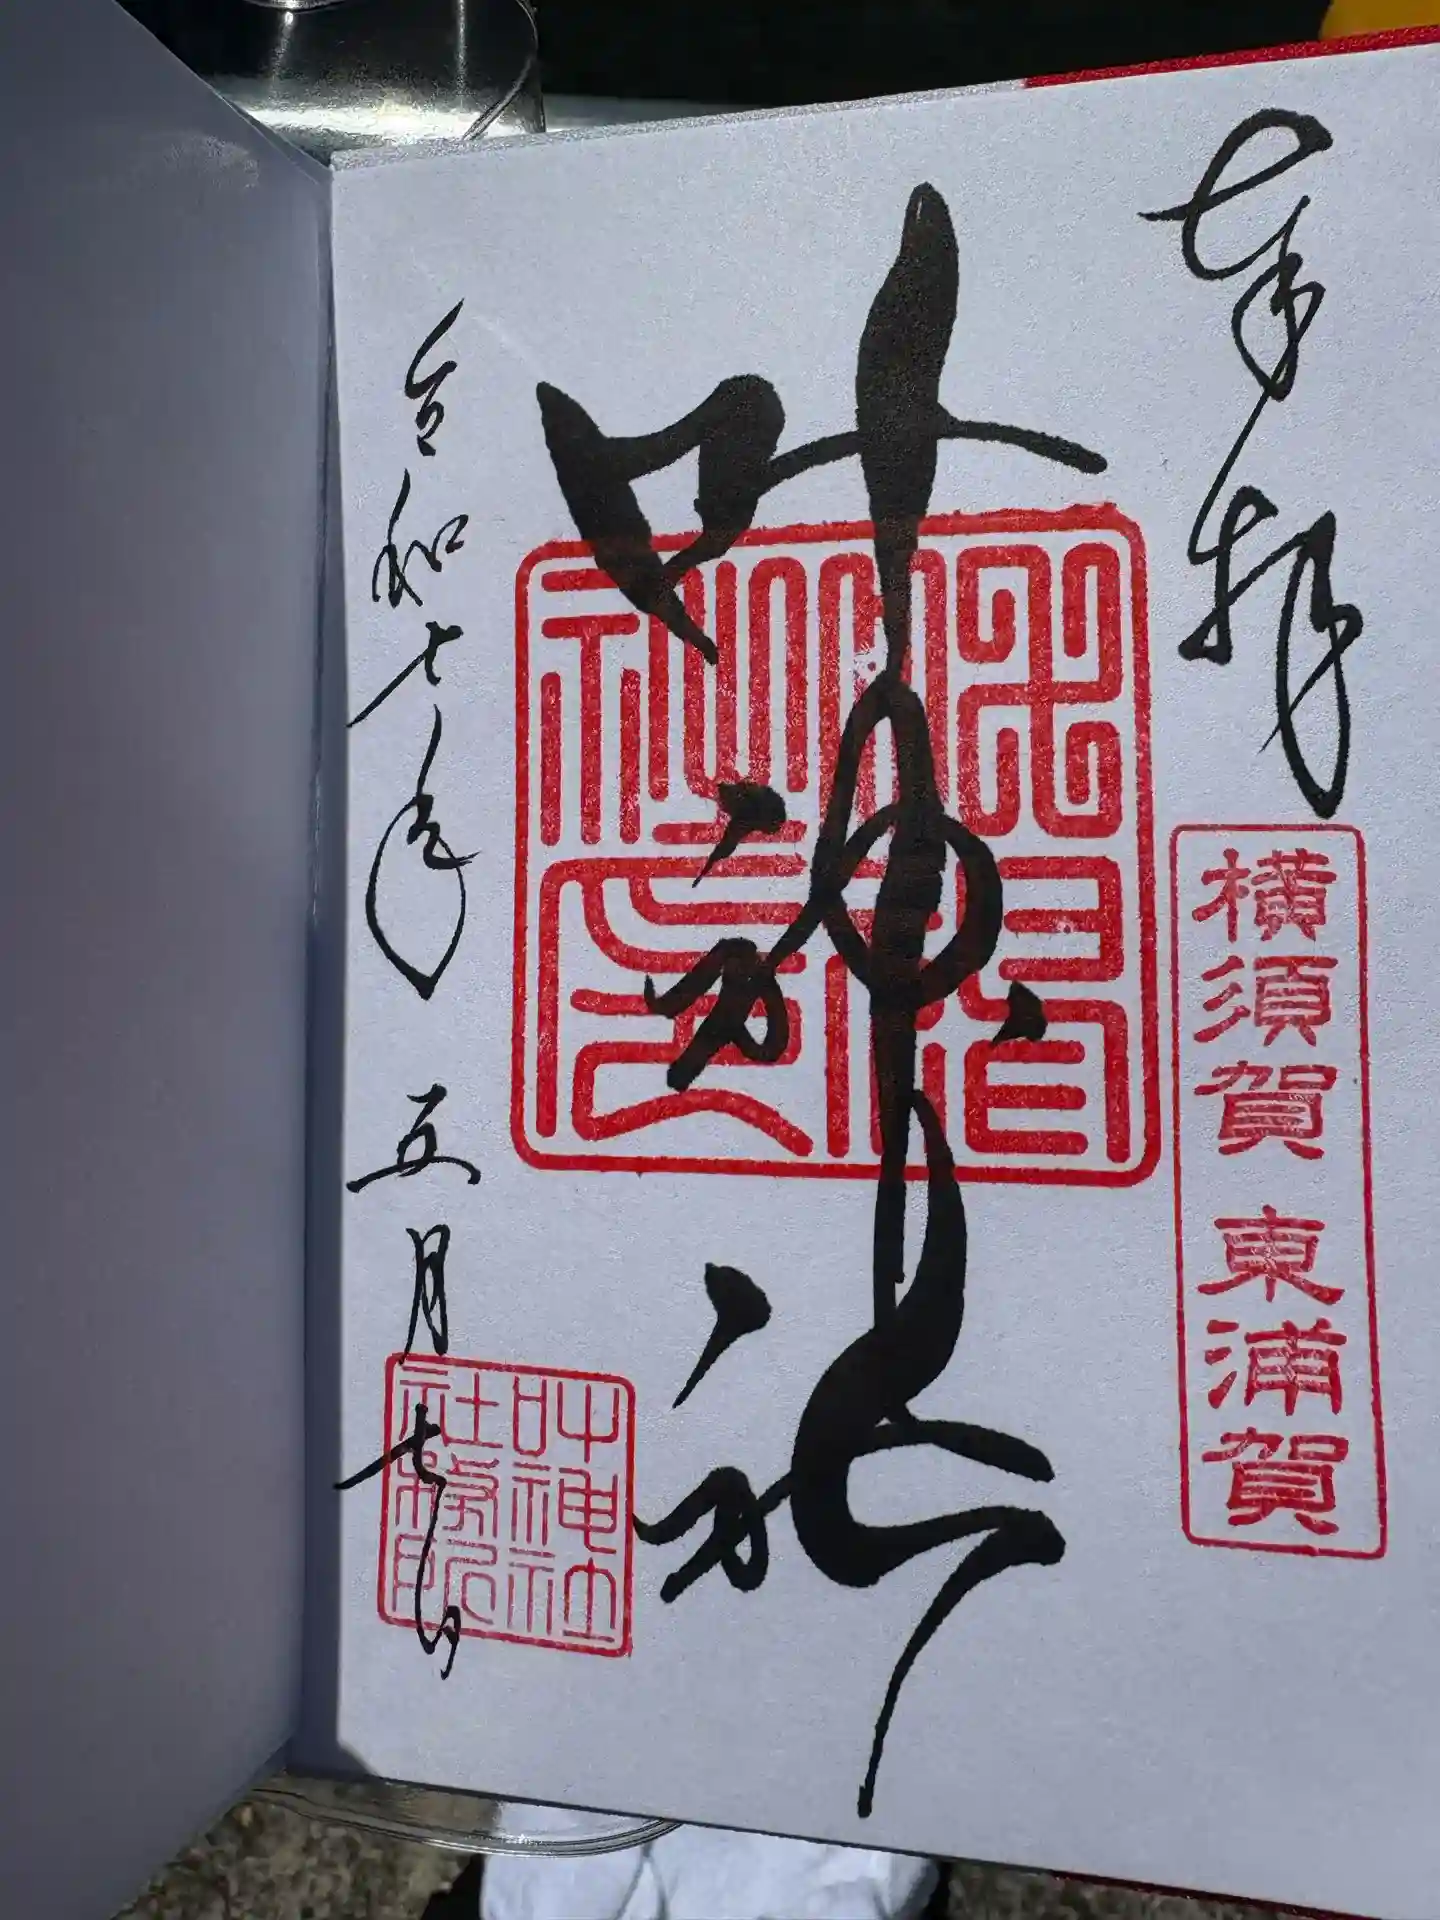 奉拝
横須賀 東浦賀
叶神社
令和七年 五月 七日
叶神社
社務所